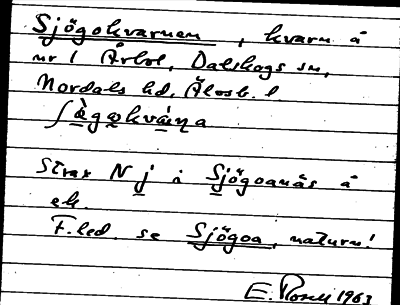 Sjögokvarnen, kvarn å
nr 1 Årbol, Dalskogs sn,
Nordals hd, Älvsb. l
ʃø̀gọkvá̱ṇa
Strax N j i Sjögoanäs å
ek.
F.led. se Sjögoa, naturn!
E. 1963